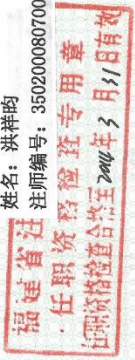 姓名：洪祥昀
注师编号：350200080700
福建省注
任职资格检查专用章
任职资格检查合格至 年3月31日有效